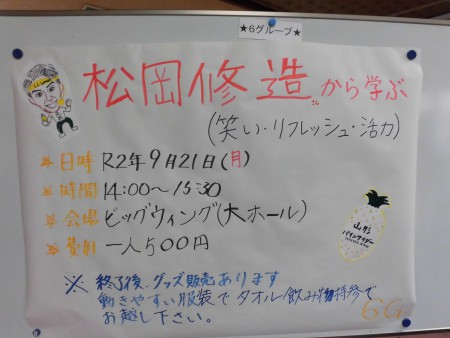 ★6グループ★
松岡修造さんから学ぶ
(笑い・リフレッシュ・活力)
★日時 R2年9月21日(月)
★時間 14:00～15:30
★会場 ビッグウィング(大ホール)
★費用 一人500円
山形
パインサイダー
※ 終了後、グッズ販売あります
動きやすい服装で タオル飲み物持参で
お越し下さい。
6G